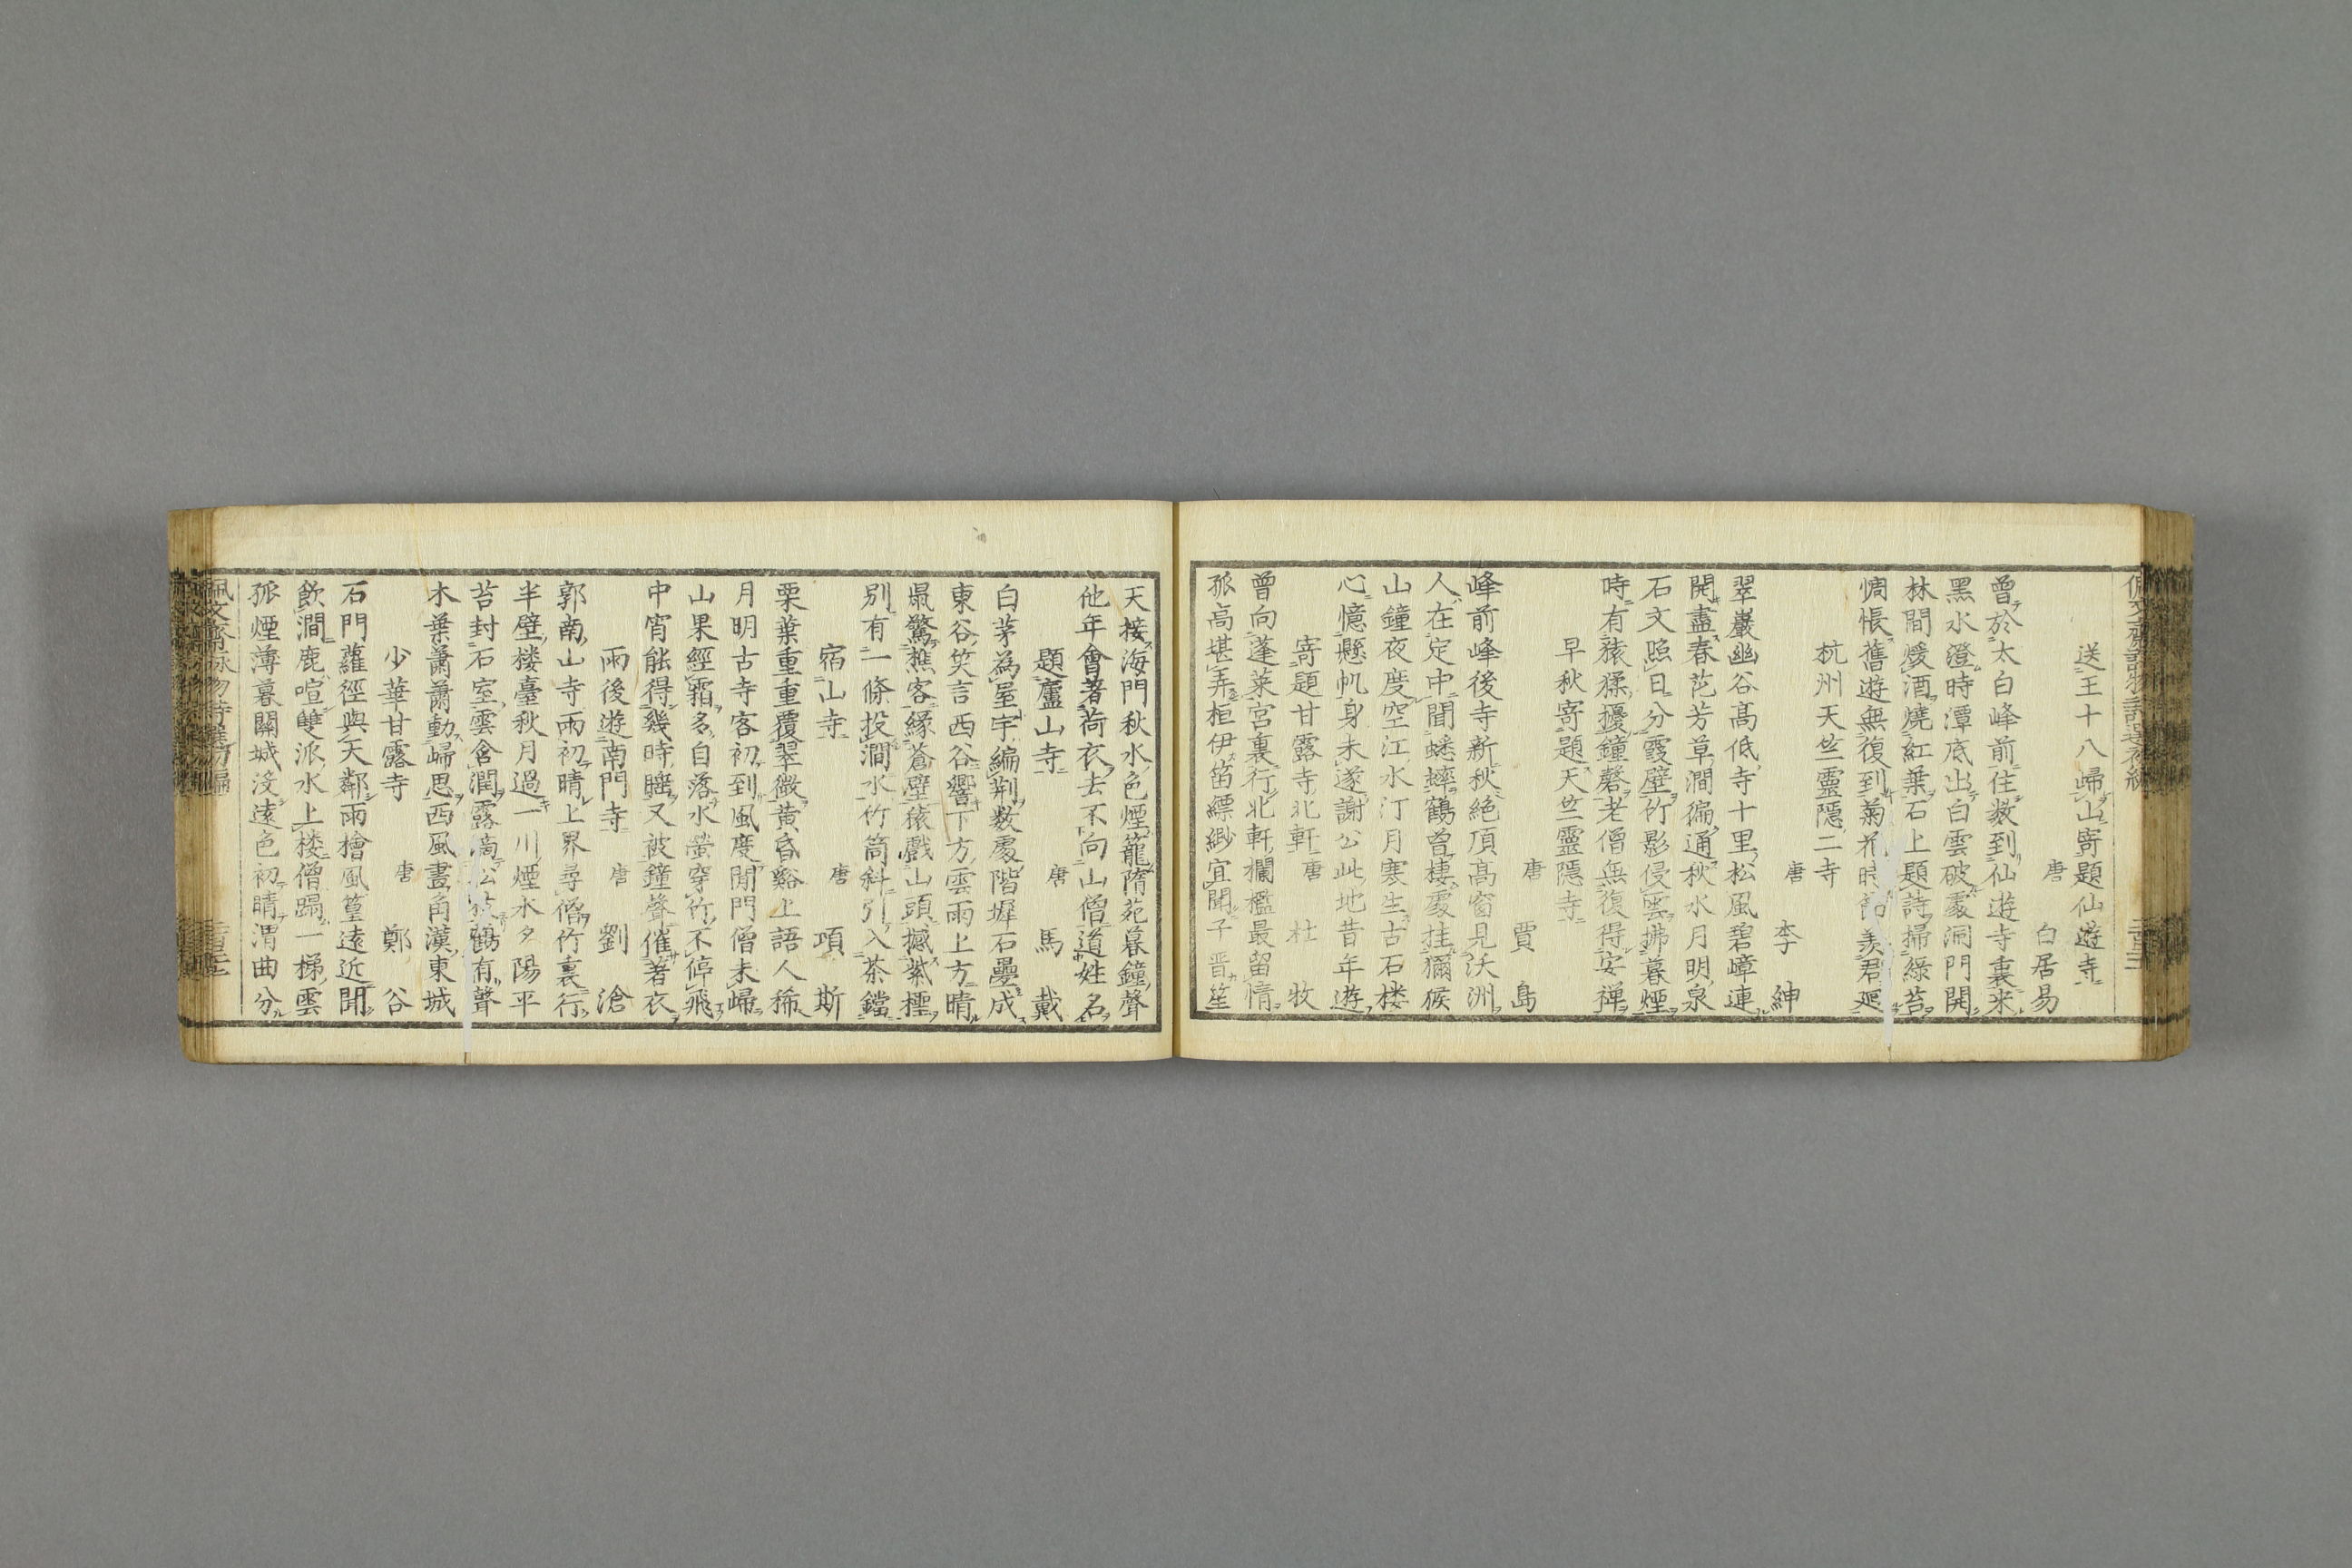 送王十八歸山寄題仙遊寺
唐 白居易
曾於太白峰前住數到仙遊寺裏来
黑水澄時潭底出白雲破處洞門開
林間煖酒燒紅葉石上題詩掃綠苔
惆悵舊遊無復到菊花時節羨君廻
杭州天竺靈隱二寺
唐 李紳
翠巖幽谷高低寺十里松風碧嶂連
開盡春花芳草澗徧通秋水月明泉
石文照日分霞壁竹影侵雲拂暮煙
時有猿猱擾鐘磬老僧無復得安禅
早秋寄題天竺靈隱寺
唐 賈島
峰前峰後寺新秋絶頂高窗見沃洲
人在定中聞蟋蟀鶴曾棲處挂獼猴
山鐘夜度空江水汀月寒生古石楼
心憶懸帆身未遂謝公此地昔年遊
寄題甘露寺北軒 唐 杜牧
曾向蓬萊宮裏行北軒欄檻最留情
孤高堪弄桓伊笛縹緲宜聞子晋笙
天接海門秋水色煙籠隋苑暮鐘聲
他年會著荷衣去不向山僧道姓名
題廬山寺 唐 馬戴
白茅為屋宇編荆数處階墀石疊成
東谷笑言西谷響下方雲雨上方晴
鼠驚樵客緣蒼壁猿戲山頭撼紫檉
別有一條投澗水竹筒斜引入茶鐺
宿山寺 唐 項斯
栗葉重重覆翠微黄昏谿上語人稀
月明古寺客初到風度閒門僧未歸
山果經霜多自落水螢穿竹不停飛
中宵能得幾時睡又被鐘聲催著衣
雨後遊南門寺 唐 劉滄
郭南山寺雨初晴上界尋僧竹裏行
半壁楼臺秋月過一川煙水夕陽平
苔封石室雲含潤露滴松枝鶴有聲
木葉蕭蕭動歸思西風畫角漢東城
少華甘露寺 唐 鄭谷
石門蘿徑與天鄰雨檜風篁遠近聞
飲澗鹿喧雙派水上楼僧蹋一梯雲
孤煙薄暮關城没遠色初晴渭曲分
佩文齋詠物詩選初編